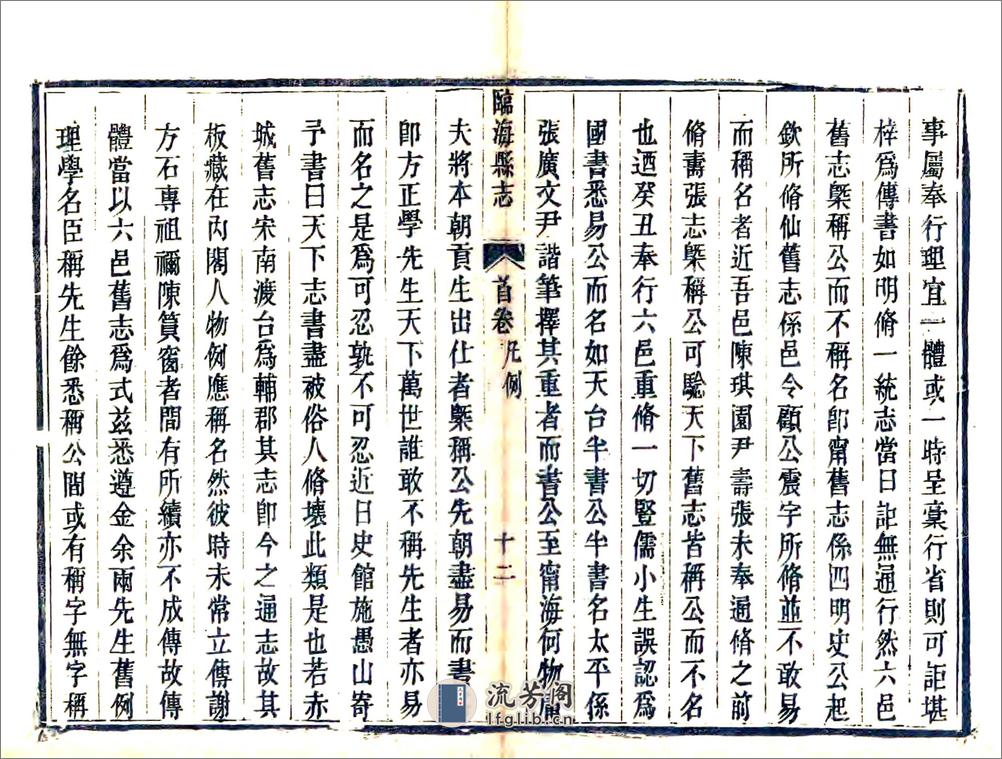 事屬奉行理宜一體或一時呈稾行省則可詎堪
梓爲傳書如明脩一統志當日詎無通行然六邑
舊志槩稱公而不稱名卽甯舊志係四明史公起
欽所脩仙舊志係邑令顧公震宇所脩並不敢易
而稱名者近吾邑陳琪園尹壽張未奉通脩之前
脩壽張志槩稱公可騐天下舊志皆稱公而不名
也迺癸丑奉行六邑重脩一切豎儒小生誤認爲
國書悉易公而名如天台半書公半書名太平係
張廣文尹諧筆擇其重者而書公至甯海何物庸
臨海縣志 首卷 凡例 十二
夫將本朝貢生出仕者槩稱公先朝盡易而書名
卽方正學先生天下萬世誰敢不稱先生者亦易
而名之是爲可忍孰不可忍近日史館施愚山寄
予書曰天下志書盡被俗人脩壞此類是也若赤
城舊志宋南渡台爲輔郡其志卽今之通志故其
板藏在內閣人物例應稱名然彼時未常立傳謝
方石專祖禰陳篔窗者間有所續亦不成傳故傳
體當以六邑舊志爲式茲悉遵金余兩先生舊例
理學名臣稱先生餘悉稱公間或有稱字無字稱
流芳阁
lfglib.cn